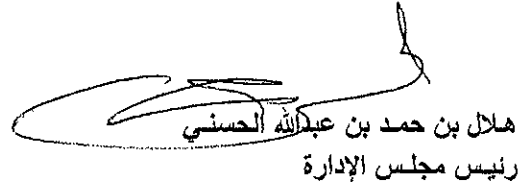 هلال بن حمد بن عبدالله الحسني
رئيس مجلس الإدارة